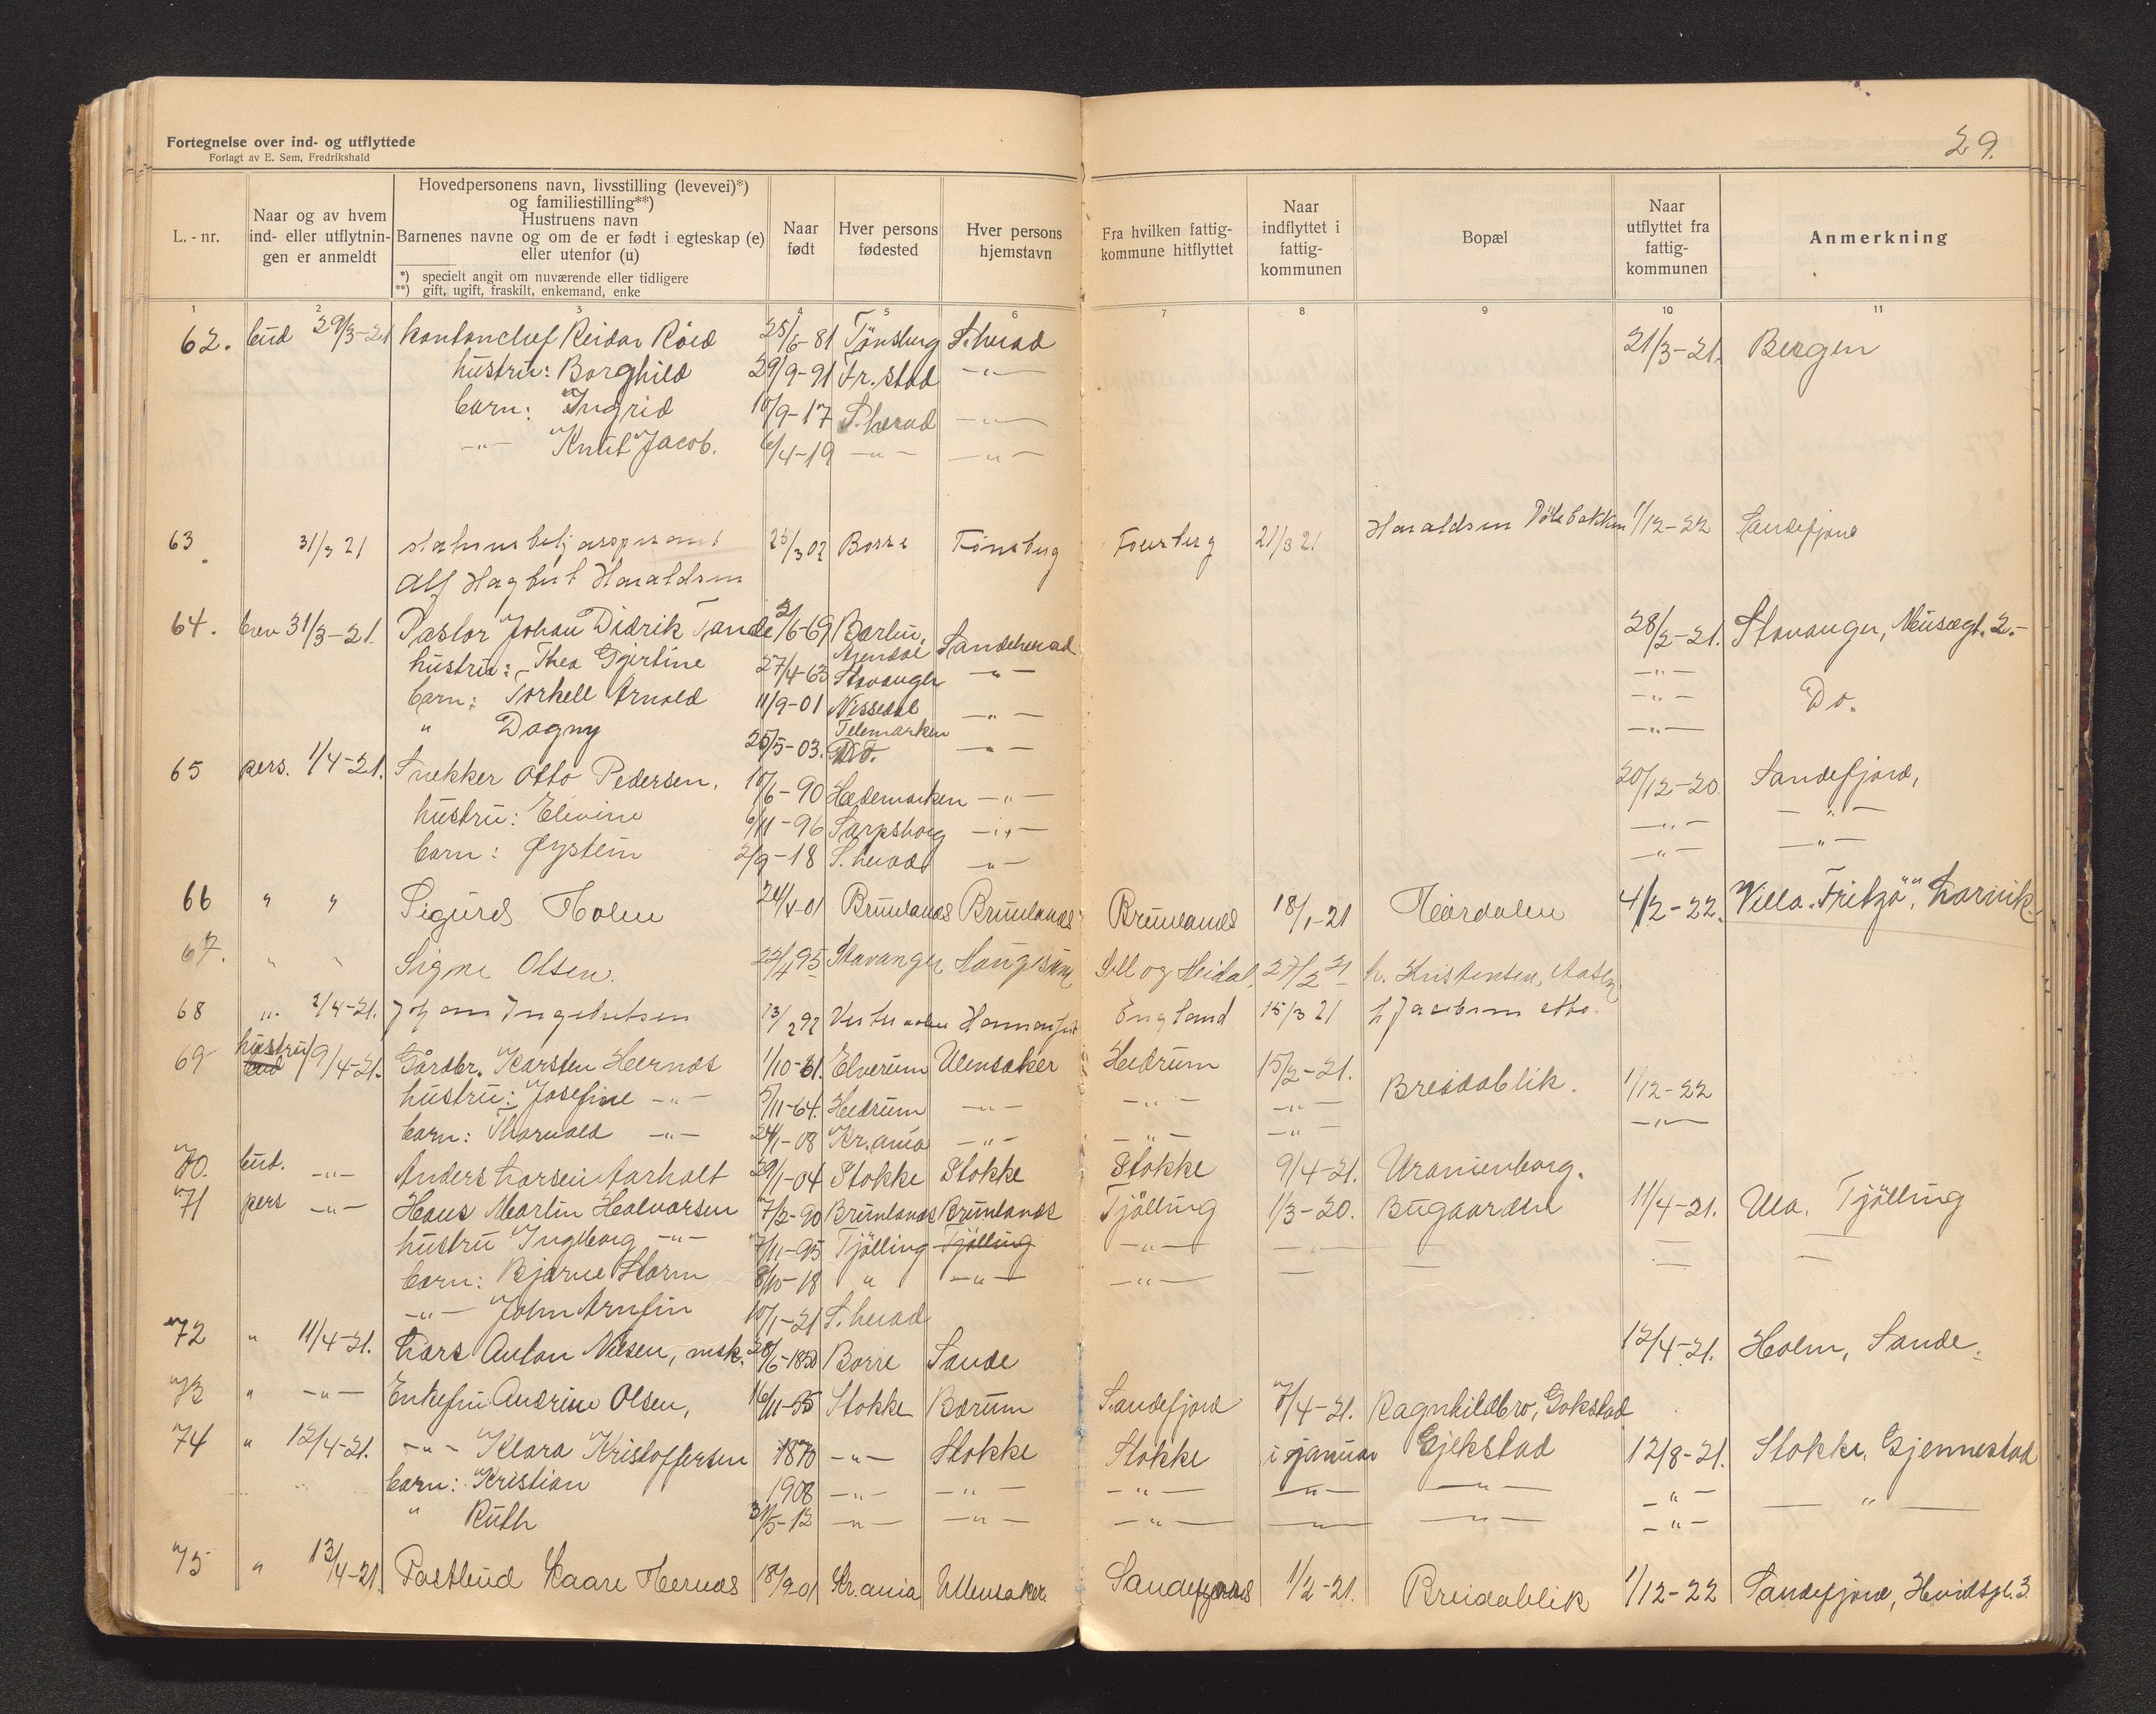 Fortegnelse over ind- og utflyttede
Forlagt av E. Sem, Fredrikshald
29.
L. - nr.
Naar og av hvem ind- eller utflytnin- gen er anmeldt
Hovedpersonens navn, livsstilling (levevei)*)
og familiestilling**)
Hustruens navn
Barnenes navne og om de er født i egteskap (e)
eller utenfor (u)
*) specielt angit om nuværende eller tidligere
**) gift, ugift, fraskilt, enkemand, enke
Naar født
Hver persons fødested
Hver persons hjemstavn
Fra hvilken fattig- kommune hitflyttet
Naar indflyttet i fattig- kommunen
Bopæl
Naar utflyttet fra fattig- kommunen
Anmerkning
1 2 3 4 5 6 7 8 9 10 11
62. bud 29/3-21 kontorchef Reidar Röed 25/6-81 Tönsberg S.herad 21/3-21. Bergen
hustru: Borghild 29/9-91 Fr.stad -"-
barn: Ingrid 10/9-17 S.herad -"-
-"- Knut Jacob. 6/4-19 -"- -"-
63. 31/3 21 25/3 02 Borre Tönsberg 21/3 21 Haraldsen 1/12-22 Sandefjord
Alf Hagbart Haraldsen
64. brev 31/3-21. Pastor Johan Didrik Tande 2/6-69 Sandeherad 28/2-21. Stavanger, 2.-
hustru: Thea Gjertine 27/4-63 Stavanger -"- -"-
barn: Torkell Arnold 11/9-01 Nissedal -"- -"- Do.
Telemarken
" Dagny 25/5-03. Do. -"- -"-
65 pers. 1/4-21. Snekker Otto Pedersen. 10/6-90 Hedemarken -"- 20/12-20 Sandefjord,
hustru: Elevine 6/11-96 Sarpsborg -"- -"- -"-
barn: Øystein 2/9-18 S.herad -"- -"- -"-
66 " " Sigurd Holm Brunlanes Brunlanes Brunlanes 18/1-21 4/2-22. Villa "Fritzö", Larvik.
67. " " Signe Olsen. 22/4 95 Stavanger Sell og Heidal, 27/2 21 h. Kristensen,
68 " 2/4-21. Johan Ingebretsen England 15/3 21
69 hustru 9/4-21. Gårdbr. Karsten Heernes 1/10-61. Elverum Ulensaker Hedrum 15/2-21. Breidablik. 1/12-22
hustru: Josefine -"- 5/11-64. Hedrum -"- -"- -"-
barn: Thorvald -"- 24/1-08 Kr.ania -"- -"- -"- -"-
70. bud. -"- Anders Larsen Aarholt 29/1-04 Stokke Stokke Stokke 9/4-21. Uranienborg.
71 pers -"- Hans Martin Halvorsen 7/2-90 Brunlanes Brunlanes Tjölling 1/3-20. Bugaarden 11/4-21. Ula. Tjölling
hustru Ingeborg -"- 7/11-95 Tjölling Tjölling -"-
barn: Bjarne Storm 8/10-18 " -"- -"-
-"- John Arnfin 10/1-21 S.herad
72 " 11/4-21. Lars Anton Nilsen, msk. 28/6-1850 Borre Sande 12/4-21. Holm, Sande.
73 " -"- Enkefru Andrine Olsen, 16/11-55 Stokke Bærum Sandefjord 7/4-21. Ragnhildbro, Gokstad
74 " 12/4-21. -"- Klara Kristoffersen 1870 -"- Stokke Stokke i januar Gjekstad 12/8-21. Stokke, Gjennestad
barn: Kristian 1908 -"- -"- -"- -"- -"- -"-
" Ruth 31/5-12 -"- -"- -"- -"- -"- -"- -"-
75 " 13/4-21. Postbud Kaare Hernes 18/9-01 Kr.ania Ullensaker. Sandefjord 1/2-21. Breidablik 1/12-22 Sandefjord, Hvidtspl. 3.